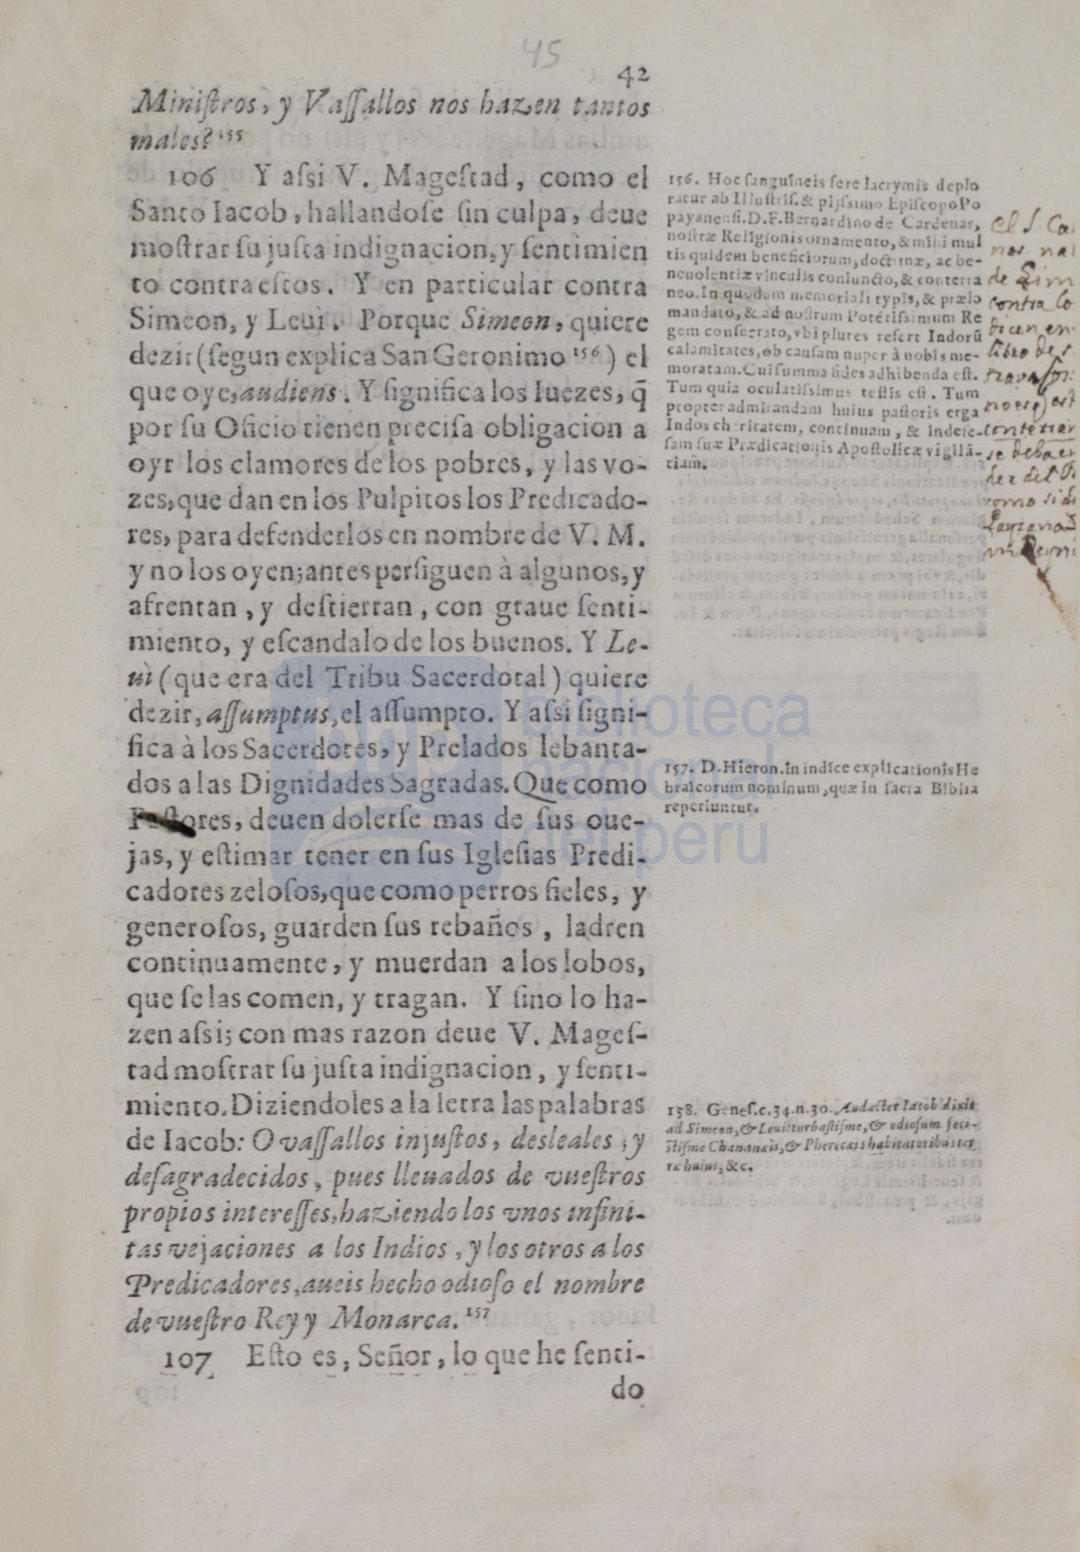 45
42
Miniſtros, y Vaſſallos nos hazen tantos
males? 155
106 Y aſsi V. Mageſtad, como el
Santo Iacob, hallandoſe ſin culpa, deue
moſtrar ſu juſta indignacion, y ſentimien
to contra eſtos. Y en particular contra
Simeon, y Leui. Porque Simeon, quiere
dezir (ſegun explica San Geronimo 156) el
que oye, audiens. Y ſignifica los Iuezes, q̃
por ſu Oficio tienen preciſa obligacion a
oyr los clamores de los pobres, y las vo-
zes, que dan en los Pulpitos los Predicado-
res, para defenderlos en nombre de V. M.
y no los oyen; antes perſiguen à algunos, y
afrentan, y deſtierran, con graue ſenti-
miento, y eſcandalo de los buenos. Y Le-
uì (que era del Tribu Sacerdotal) quiere
dezir, aſſumptus, el aſſumpto. Y aſsi ſigni-
fica à los Sacerdotes, y Prelados lebanta-
dos a las Dignidades Sagradas. Que como
Paſtores, deuen dolerſe mas de ſus oue-
jas, y eſtimar tener en ſus Igleſias Predi-
cadores zeloſos, que como perros fieles, y
generoſos, guarden ſus rebaños, ladren
continuamente, y muerdan a los lobos,
que ſe las comen, y tragan. Y ſino lo ha-
zen aſsi; con mas razon deue V. Mageſ-
tad moſtrar ſu juſta indignacion, y ſenti-
miento. Diziendoles a la letra las palabras
de Iacob: O vaſſallos injuſtos, desleales, y
deſagradecidos, pues lleuados de vueſtros
propios intereſſes, haziendo los vnos infini-
tas vejaciones a los Indios, y los otros a los
Predicadores, aueis hecho odioſo el nombre
de vueſtro Rey y Monarca. 157
107 Eſto es, Señor, lo que he ſenti-
do
156. Hoc ſanguineis fere lacrymis deplo
ratur ab Illuſtriſ. & pijſsimo Epiſcopo Po
payanenſi. D. F. Bernardino de Cardenas,
noſtræ Religionis ornamento, & mihi mul
tis quidem beneficiorum, doctrinæ, ac be-
neuolentiæ vinculis coniuncto, & conterra
neo. In quodam memoriali typis, & prælo
mandato, & ad noſtrum Potẽtiſsimum Re
gem conſecrato, vbi plures refert Indorũ
calamitates, ob cauſam nuper à nobis me-
moratam. Cui ſumma fides adhibenda eſt.
Tum quia oculatiſsimus teſtis eſt. Tum
propter admirandam huius paſtoris erga
Indos charitatem, continuam, & indefe-
ſam ſuæ Prædicationis Apoſtolicæ vigilã-
tiam.
el S. Ca
nos. na
de
contra lo
dicen en
libro de
se deba en
der del
como
157. D. Hieron. in indice explicationis He
braicorum nominum, quæ in ſacra Biblia
reperiuntur.
158. Geneſ. c. 34. n. 30. Audacter Iacob dixit
ad Simeon, & Leui: turbaſtiſme, & odioſum feci-
ſtiſme Chananæis, & Pherezæis habitatoribus ter
ræ huius, &c.
biblioteca
nacional
del perú